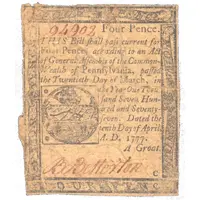 94903 Four Pence.
THIS Bill shall pass current for
Four Pence, according to an Act
of General Assembly of the Common-
wealth of Pennsylvania, passed
the Twentieth Day of March, in
the Year One Thou-
sand Seven Hun-
dred and Seventy-
seven. Dated the
tenth Day of April,
A. D. 1777.
A Groat.
C